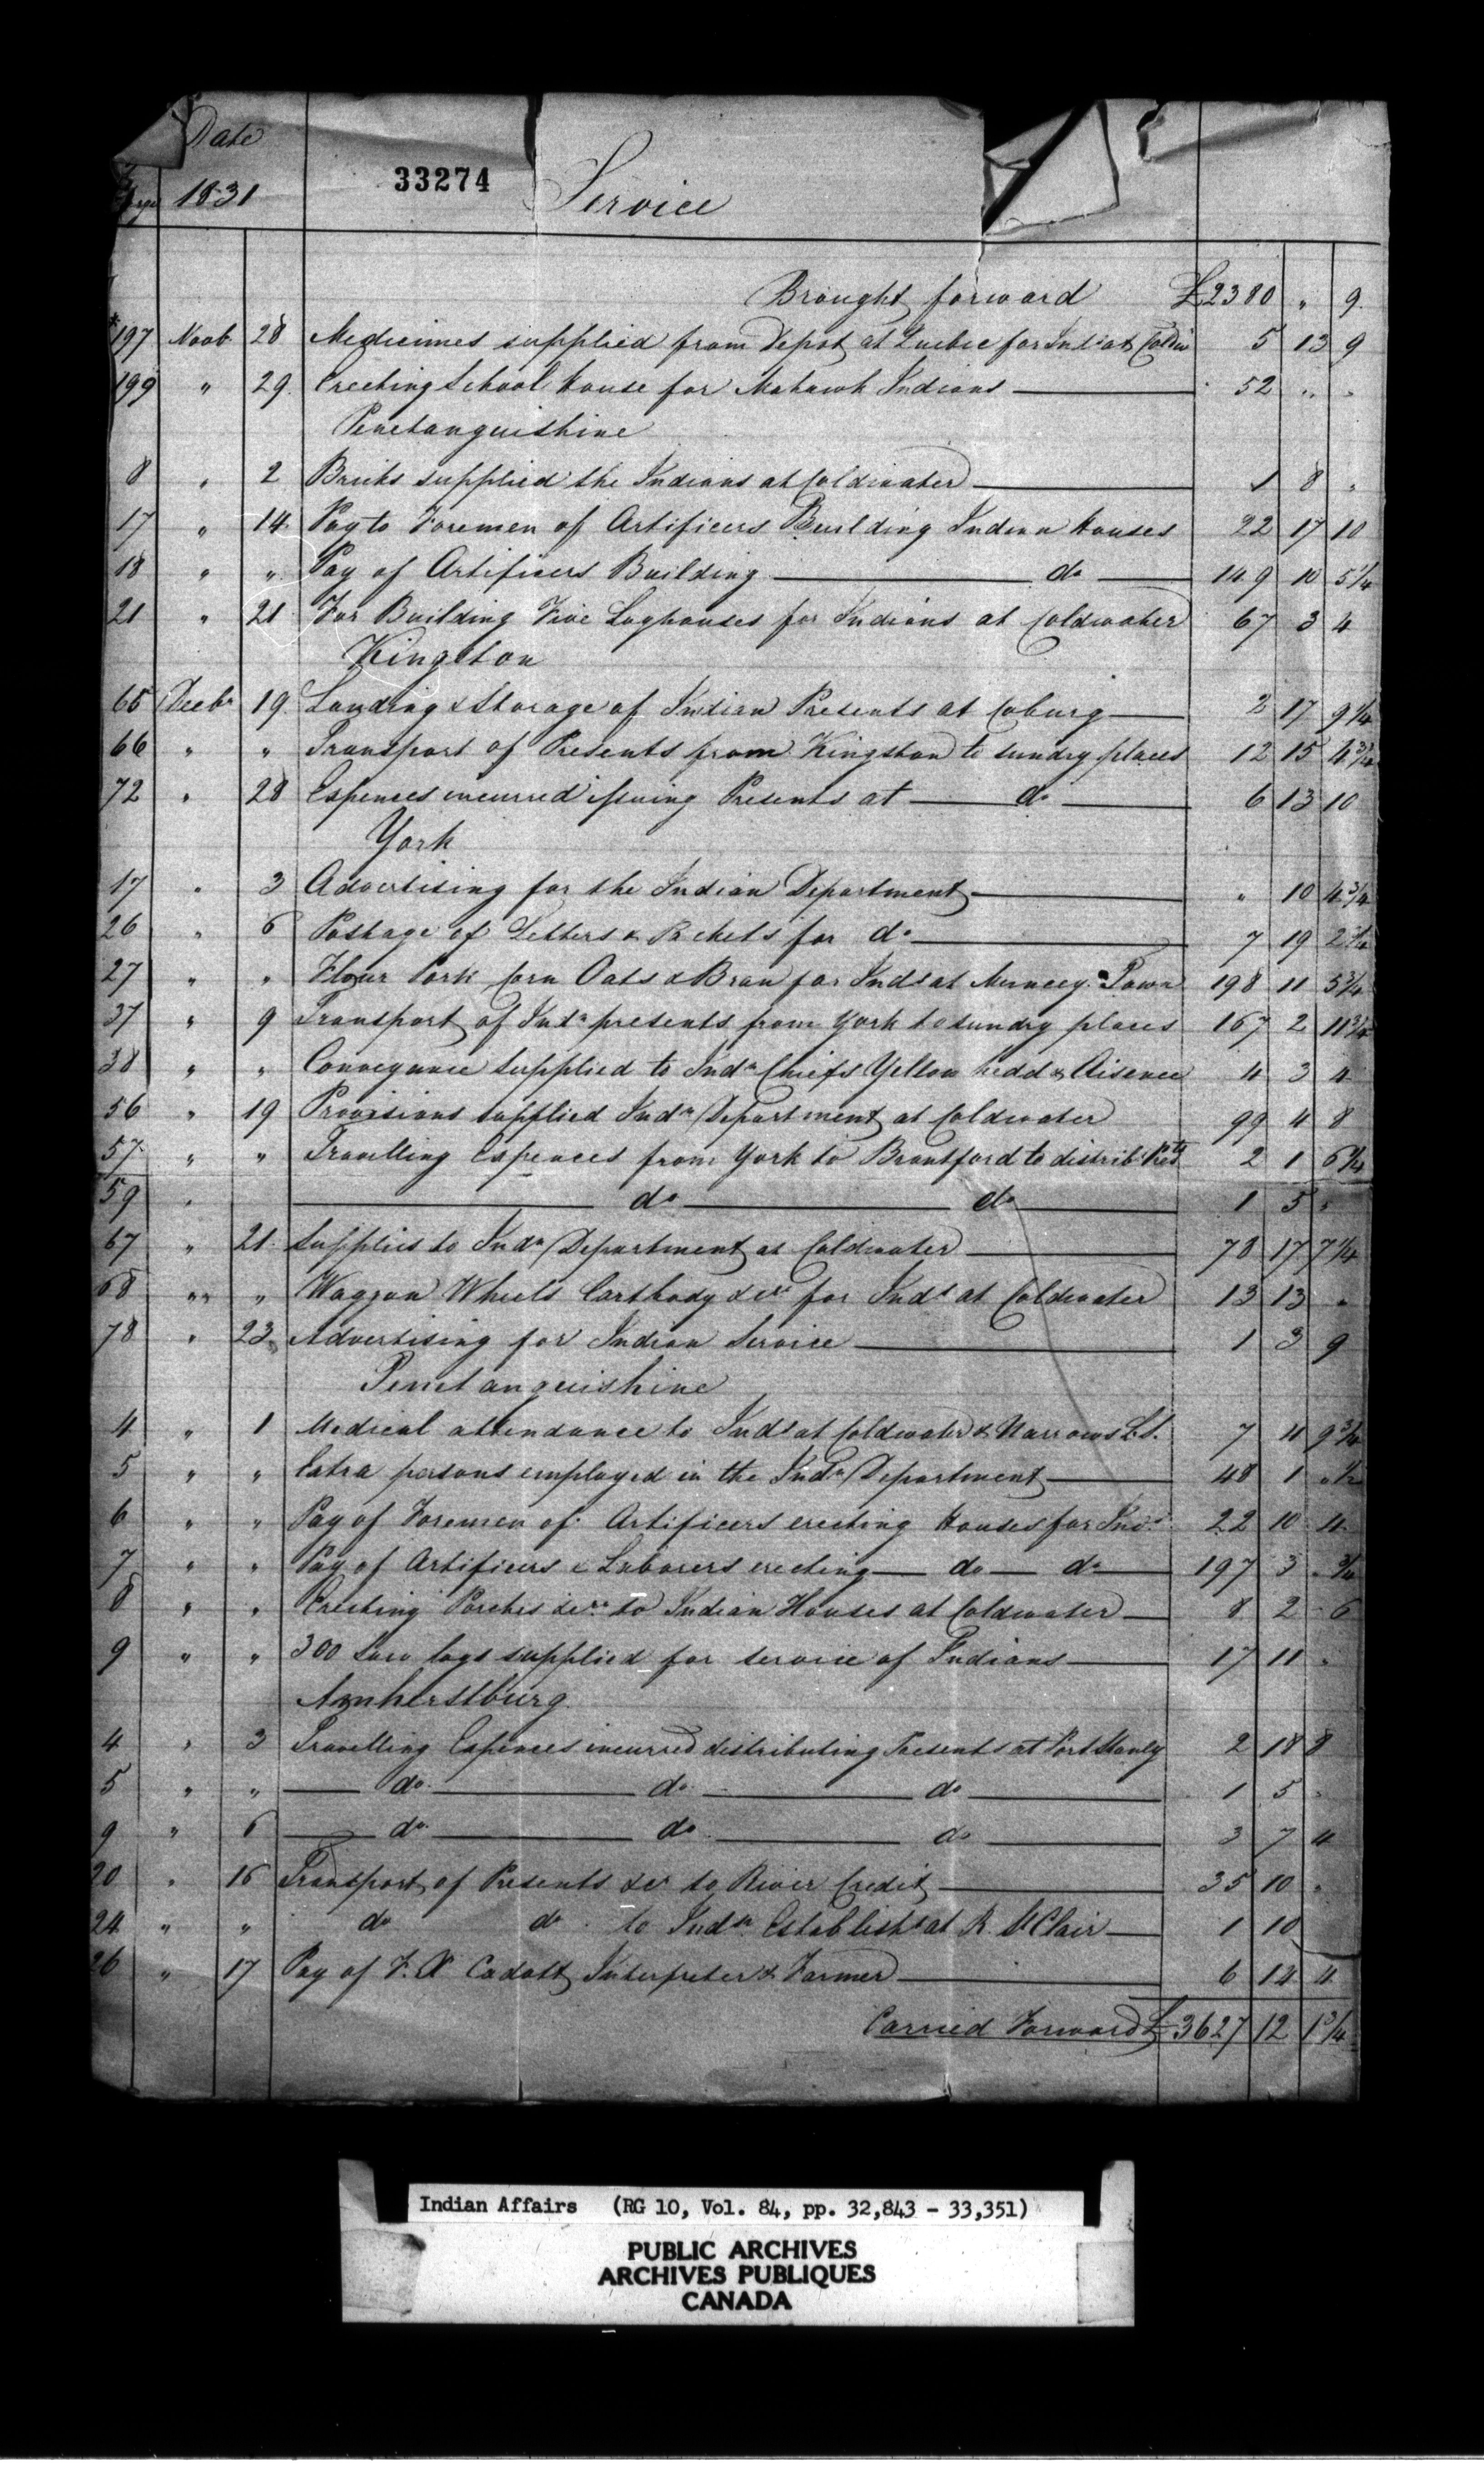 Date
33274
1831 Service
Brought forward £2380 " 9
197 Novb 28 Medicines supplied from Depot at Quebec for Inds at Coldw 5 13 9
199 " 29 Erecting School House for Mohawk Indians 52 " "
Penetanguishine
8 " 2 Bricks supplied the Indians at Coldwater 1 8 "
17 " 14 Pay to Foremen of Artificers Building Indian Houses 22 17 10
18 " " Pay of Artificers Building do 149 10 5 1/4
21 " 21 For Building Five Loghouses for Indians at Coldwater 67 3 4
Kingston
65 Decbr 19 Landing & Storage of Indian Presents at Coburg 2 17 9 1/4
66 " " Transport of Presents from Kingston to sundry places 12 15 4 3/4
72 " 28 Expences incurred issuing Presents at do 6 13 10
York
17 " 3 Advertising for the Indian Department " 10 4 3/4
26 " 6 Postage of Letters & Packets for do 7 19 2 3/4
27 " " Flour Pork Corn Oats & Bran for Inds at Muncey Town 198 11 5 3/4
37 " 9 Transport of Indn presents from York to sundry places 167 2 11 3/4
38 " " Conveyance supplied to Indn Chiefs Yellow hedd & Aisence 4 3 4
56 " 19 Provisions supplied Indn Department at Coldwater 99 4 8
57 " " Travelling Expences from York to Brantford to distrib. Prets 2 1 6 1/4
59 " do do 1 5 "
67 " 21 Supplies to Indn Department at Coldwater 78 17 7 1/4
68 " " Waggon Wheels Cartbody &c for Inds at Coldwater 13 13 "
78 " 23 Advertising for Indian Service 1 3 9
Penetanguishine
4 " 1 Medical attendance to Inds at Coldwater & Narrows L.S. 7 4 9 3/4
5 " " Extra persons employed in the Indn Department 48 1 " 1/2
6 " " Pay of Foremen of Artificers erecting Houses for Inds 22 10 4
7 " " Pay of Artificers & Laborers erecting do do 197 3 " 3/4
8 " " Erecting Porches &c to Indian Houses at Coldwater 8 2 6
9 " " 300 Saw logs supplied for service of Indians 17 11 "
Amherstburg
4 " 3 Travelling Expences incurred distributing Presents at Port Stanly 2 18 8
5 " " do do do 1 5 "
9 " 6 do do do 3 7 4
20 " 16 Transport of Presents &c to River Credit 35 10 "
24 " " do do to Indn Establisht at R. St Clair 1 10
26 " 17 Pay of F. X Cadott Interpreter & Farmer 6 14 4
Carried Forward £3627 12 1 3/4
Indian Affairs (RG 10, Vol. 84, pp. 32,843 - 33,351)
PUBLIC ARCHIVES
ARCHIVES PUBLIQUES
CANADA